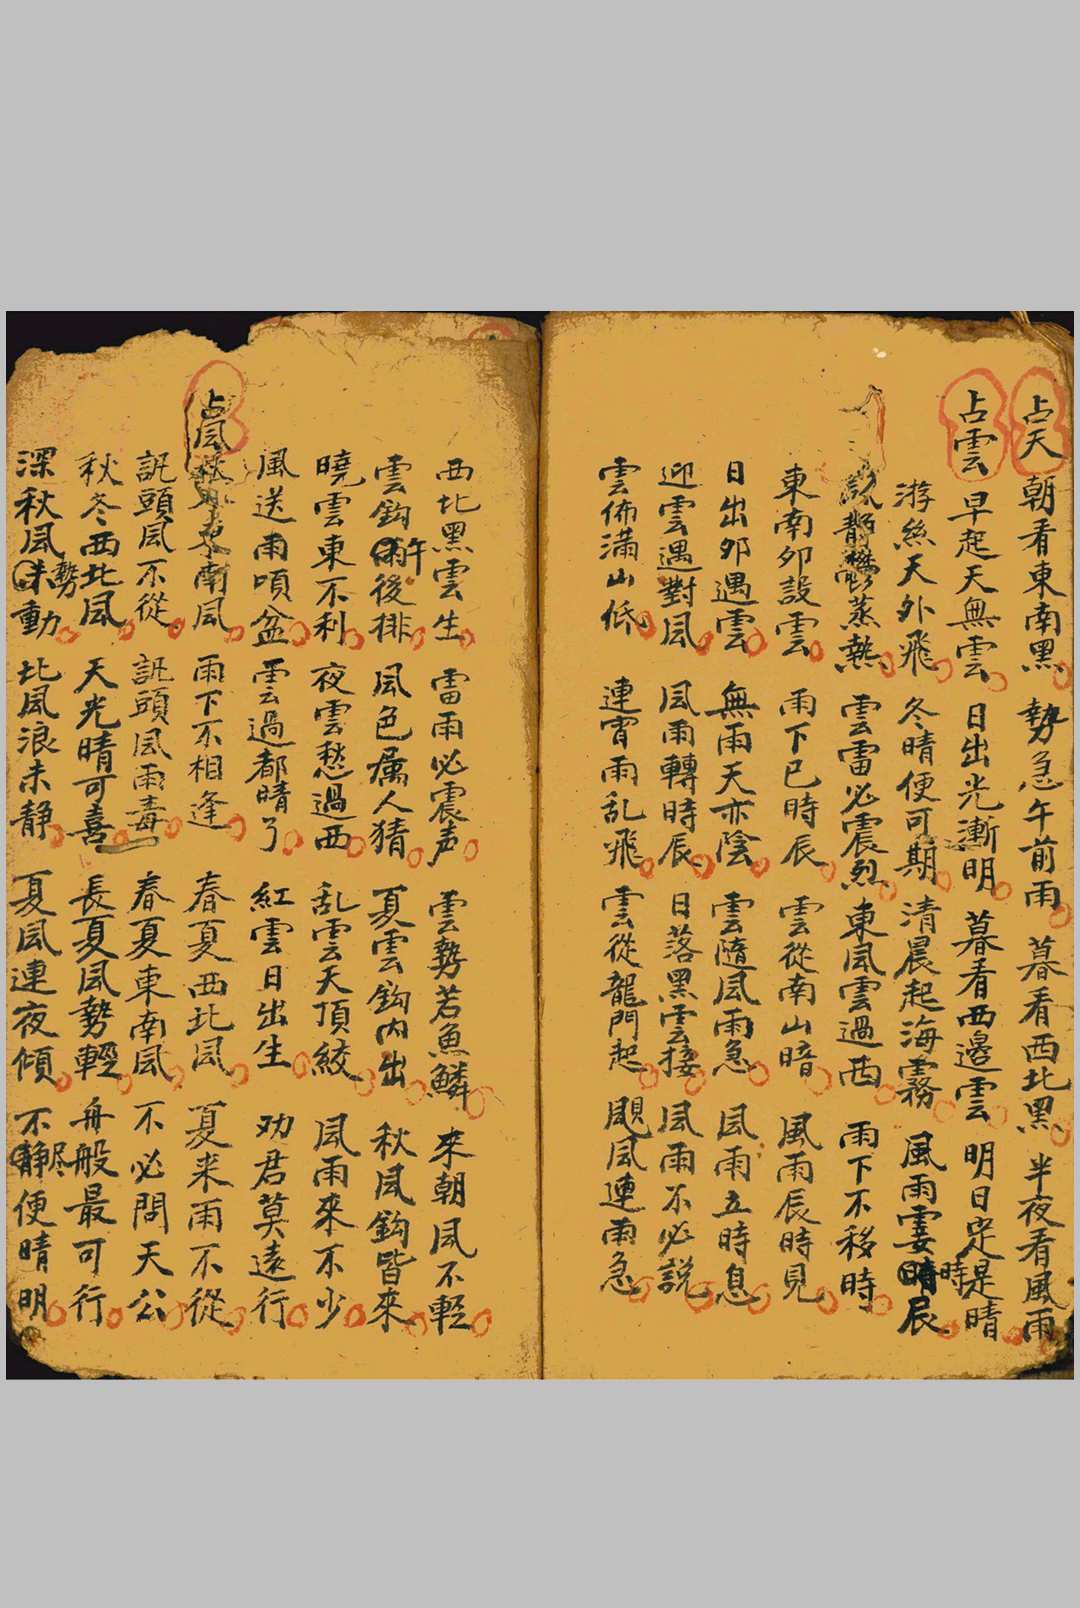 占天 朝看東南黑 勢急午前雨 暮看西北黑 半夜看風雨
占雲 早起天無雲 日出光漸明 暮看西邊雲 明日定是晴
游絲天外飛 冬晴便可期 清晨起海霧 風雨霎時辰
蒸熱 雲雷必震烈 東風雲過西 雨下不移時
東南卯設雲 雨下巳時辰 雲從南山暗 風雨辰時見
日出卯遇雲 無雨天亦陰 雲隨風雨急 風雨立時息
迎雲遇對風 風雨轉時辰 日落黑雲接 風雨不必説
雲佈滿山低 連宵雨乱飛 雲從龍門起 颶風連雨急
西北黑雲生 雷雨必震声 雲勢若魚鱗 來朝風不輕
雲鈎午後排 風色厲人猜 夏雲鈎內出 秋風鈎皆來
曉雲東不利 夜雲愁過西 乱雲天頂絞 風雨來不少
風送雨唄盆 雲過都晴了 紅雲日出生 劝君莫遠行
占風 東南風 雨下不相逢 春夏西北風 夏来雨不從
訊頭風不從 訊頭風雨毒 春夏東南風 不必問天公
秋冬西北風 天光晴可喜 長夏風勢輕 舟般最可行
深秋風勢動 北風浪未静 夏風連夜傾 不尽便晴明